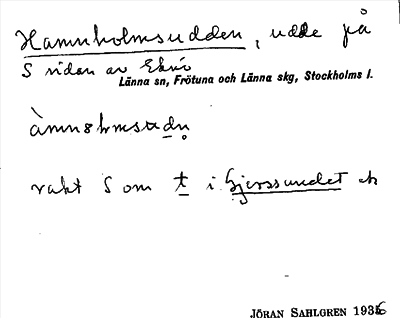 Hamnholmsudden, udde på
S sidan av Eknö
Länna sn, Frötuna och Länna skg, Stockholms l.
rakt S om t i Gjerssundet
JÖRAN SAHLGREN 1936